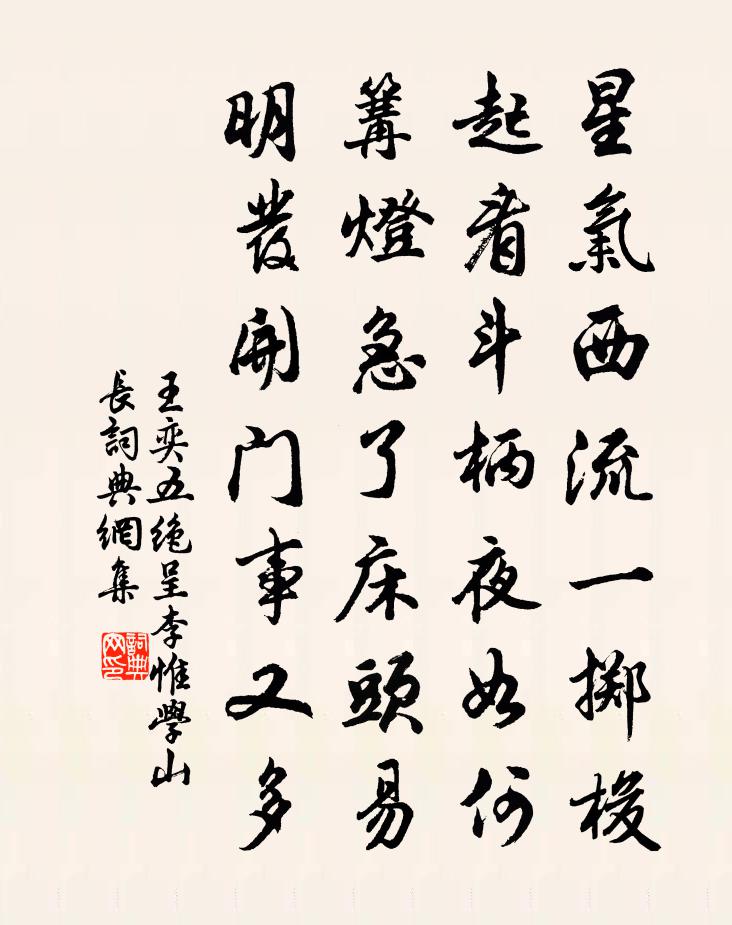 星氣西流一擲梭
起看斗柄夜如何
篝燈急了床頭易
明發開門事又多
王奕五絶呈李惟學山
長詞典網集
詞典網印